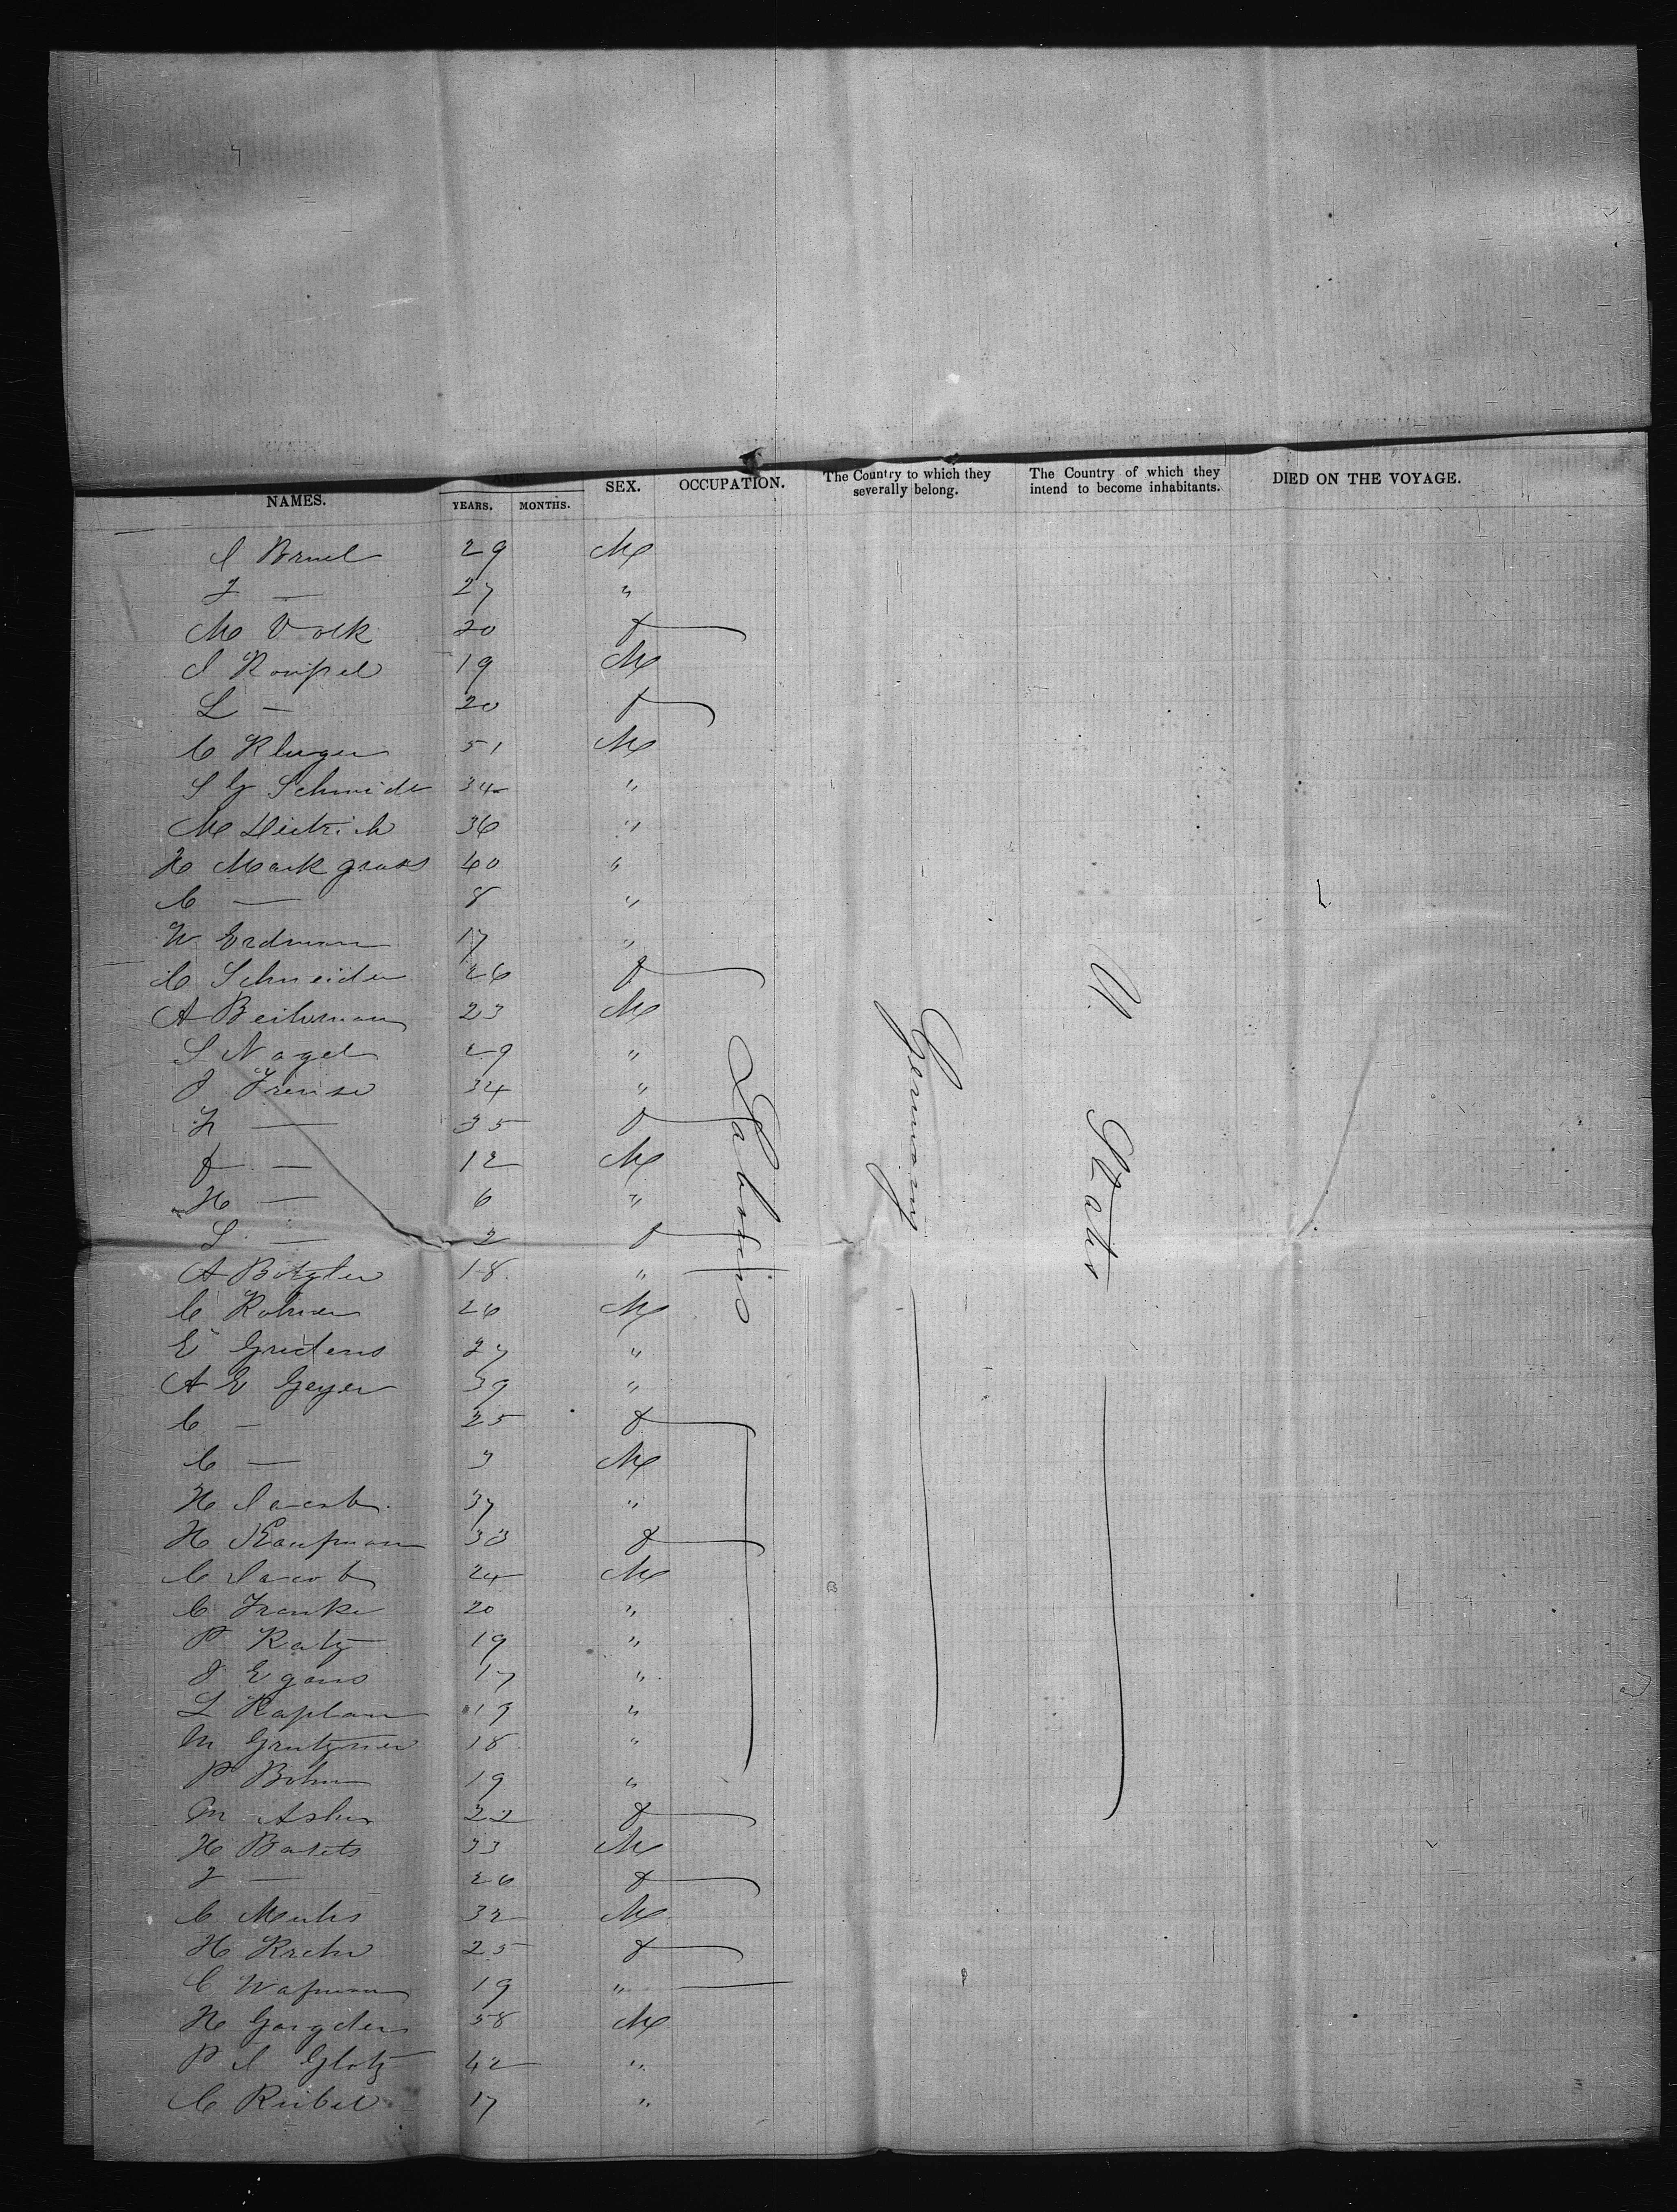 NAMES. AGE. YEARS. MONTHS. SEX. OCCUPATION. The Country to which they severally belong. The Country of which they intend to become inhabitants. DIED ON THE VOYAGE.
I Bruel 29 M
F — 27 "
M Volk 20 f
I Rompel 19 M
L — 20 f
C Kluger 51 M
S G Schmidt 34 "
M Dietrich 36 "
H Markgrass 40 "
C — 8 "
W Erdman 17 "
C Schneider 26 f
A Beihrman 23 M
S Nagel 29 "
J Frense 34 "
F — 35 f
f — 12 M
H — 6 "
L — 2 f
A Botzler 18 "
C Rohmer 26 M
E Gridens 27 "
A E Geyer 39 "
C — 25 f
C — 3 M
H Jacob 37 "
H Kaufman 33 f
C Jacob 24 M
C Franke 20 "
P Katz 19 "
J Egans 17 "
L Kaplan 19 "
M Grutzner 18 "
P Bohm 19 "
M Asher 22 f
H Barets 33 M
F — 26 f
C Muhs 32 M
H Krehn 25 f
C Wafman 19 "
H Gargden 58 M
P I Glotz 42 "
C Reibel 17 "
Laborers
Germany
U. States